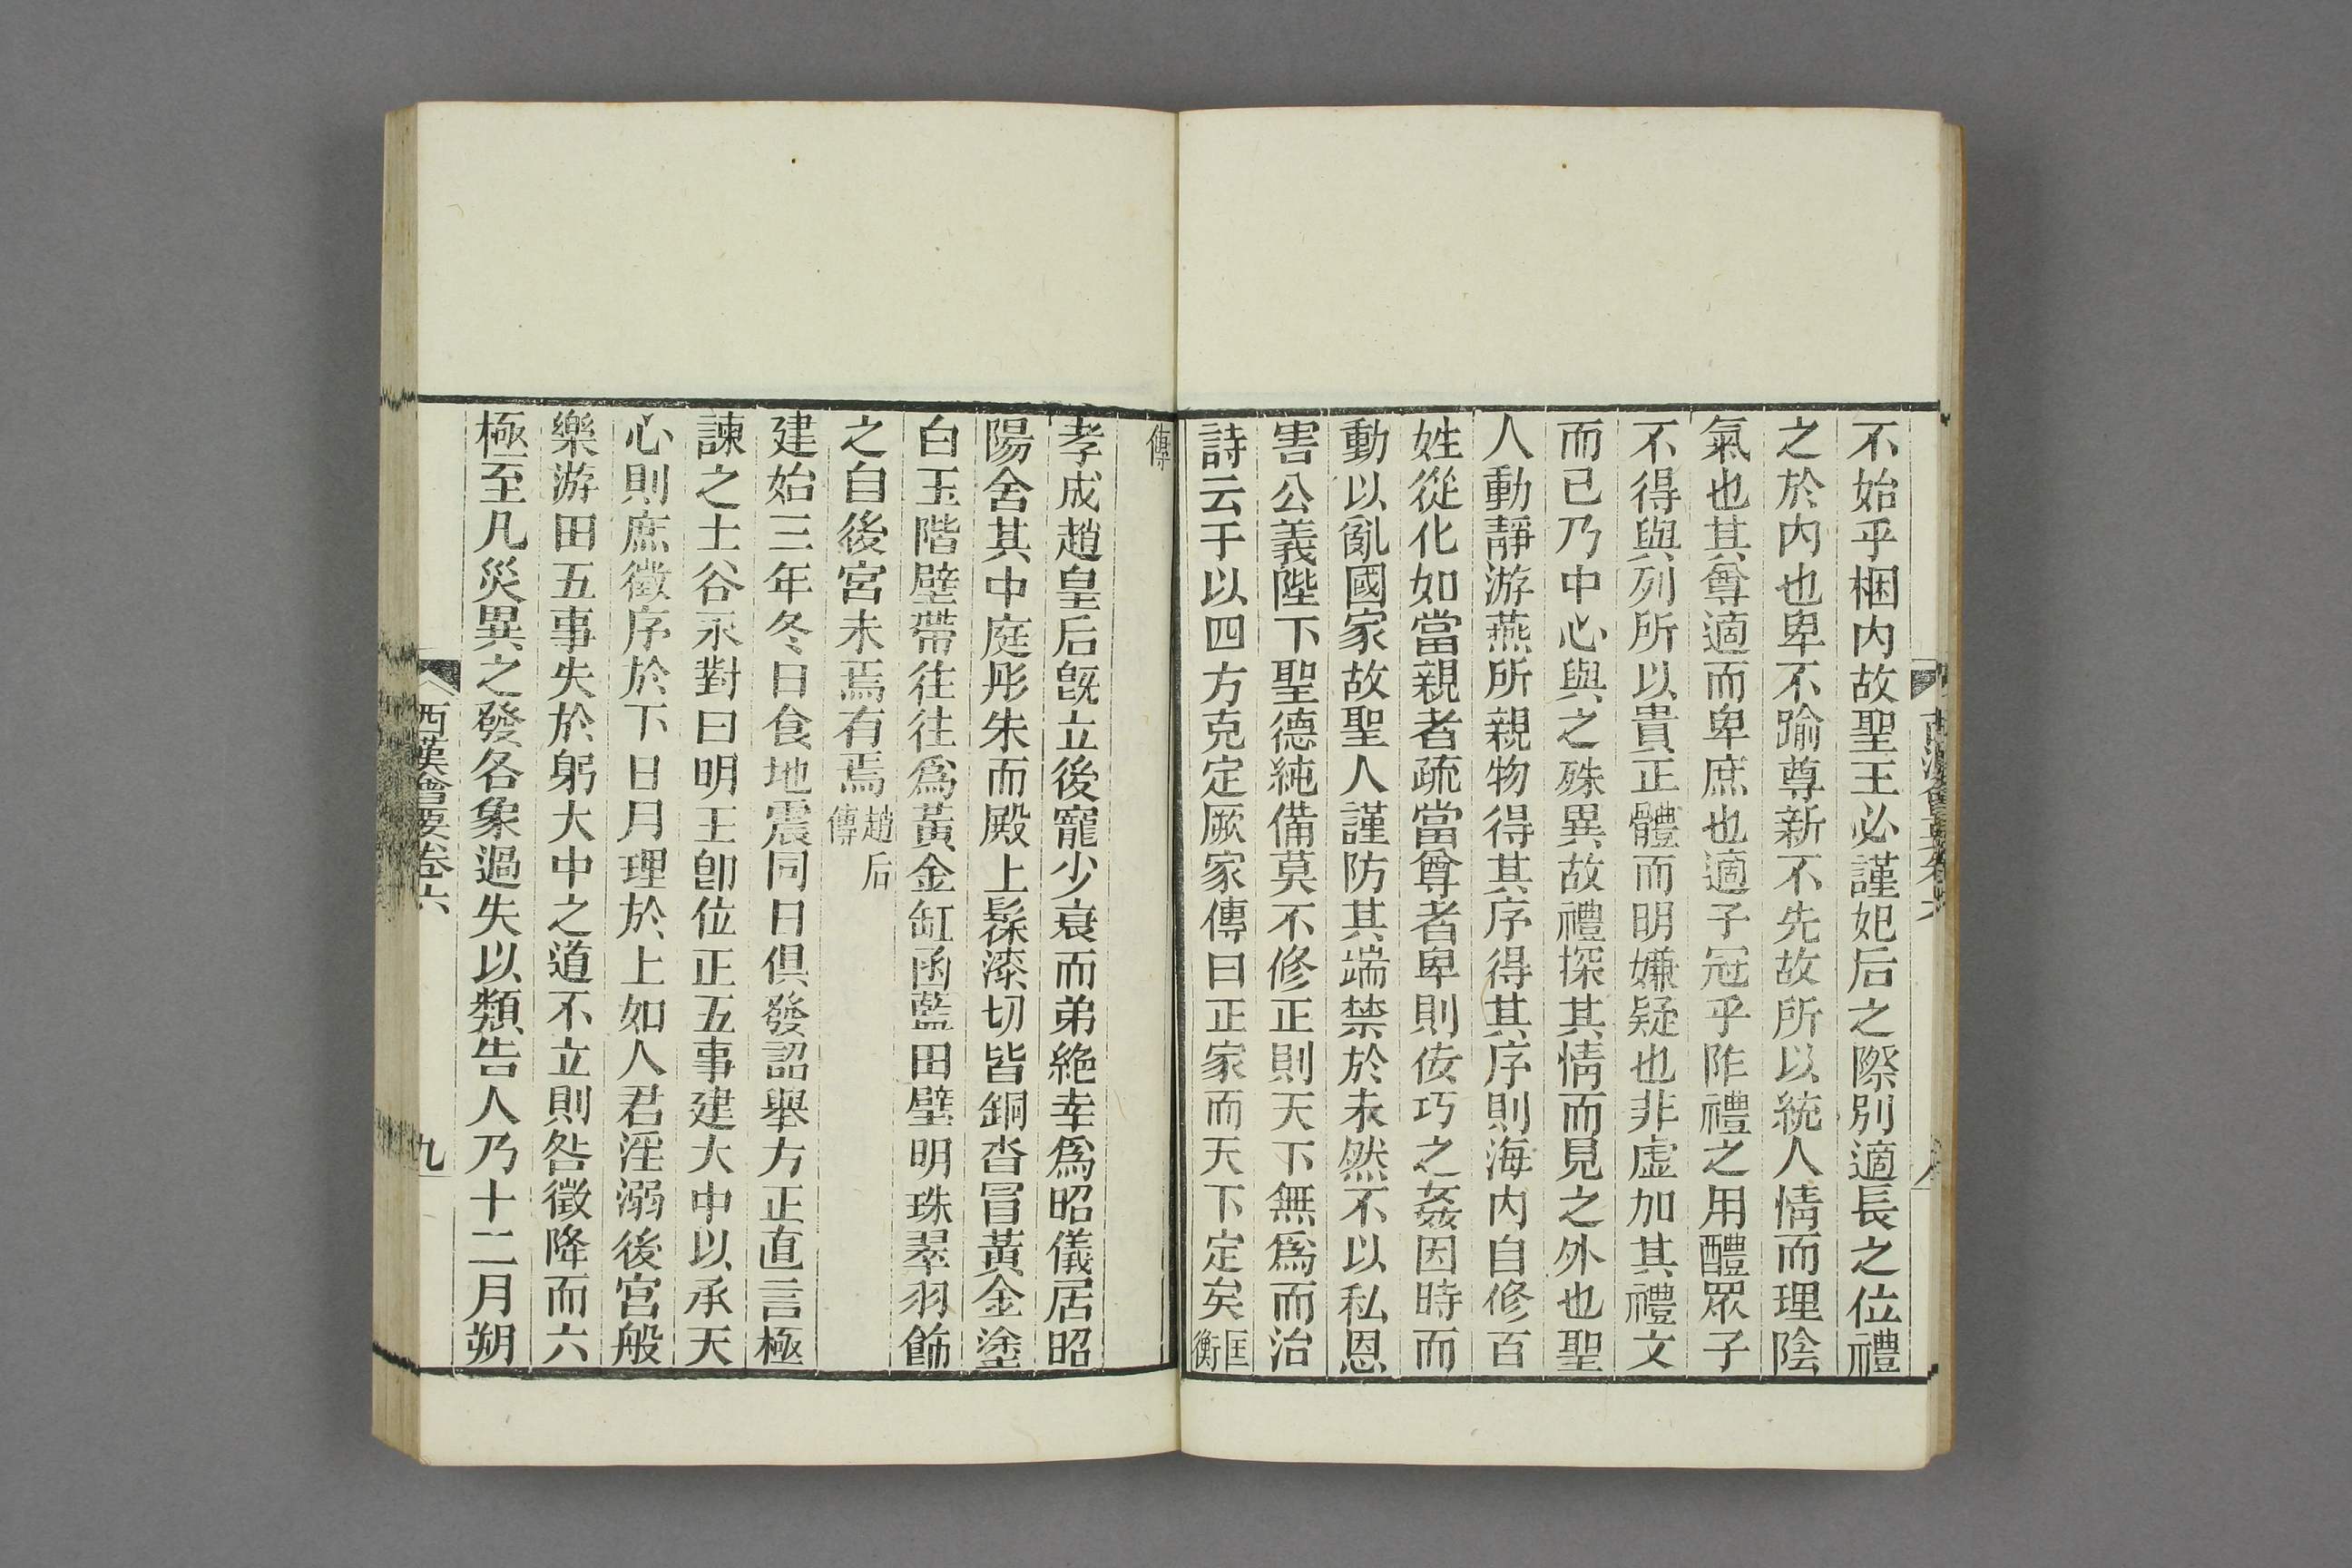 不始乎梱內故聖王必謹妃后之際別適長之位禮
之於內也卑不踰尊新不先故所以統人情而理陰
氣也其尊適而卑庶也適子冠乎阼禮之用醴眾子
不得與列所以貴正體而明嫌疑也非虛加其禮文
而已乃中心與之殊異故禮探其情而見之外也聖
人動靜游燕所親物得其序得其序則海內自修百
姓從化如當親者疏當尊者卑則佞巧之姦因時而
動以亂國家故聖人謹防其端禁於未然不以私恩
害公義陛下聖德純備莫不修正則天下無爲而治
詩云于以四方克定厥家傳曰正家而天下定矣匡衡
傳
孝成趙皇后旣立後寵少衰而弟絶幸爲昭儀居昭
陽舍其中庭彤朱而殿上髹漆切皆銅沓冒黃金塗
白玉階壁帶往往爲黃金釭函藍田璧明珠翠羽飾
之自後宮未焉有焉趙后傳
建始三年冬日食地震同日俱發詔舉方正直言極
諫之士谷永對曰明王卽位正五事建大中以承天
心則庶徵序於下日月理於上如人君淫溺後宮般
樂游田五事失於躬大中之道不立則咎徵降而六
極至凡災異之發各象過失以類告人乃十二月朔
西漢會要卷六
九